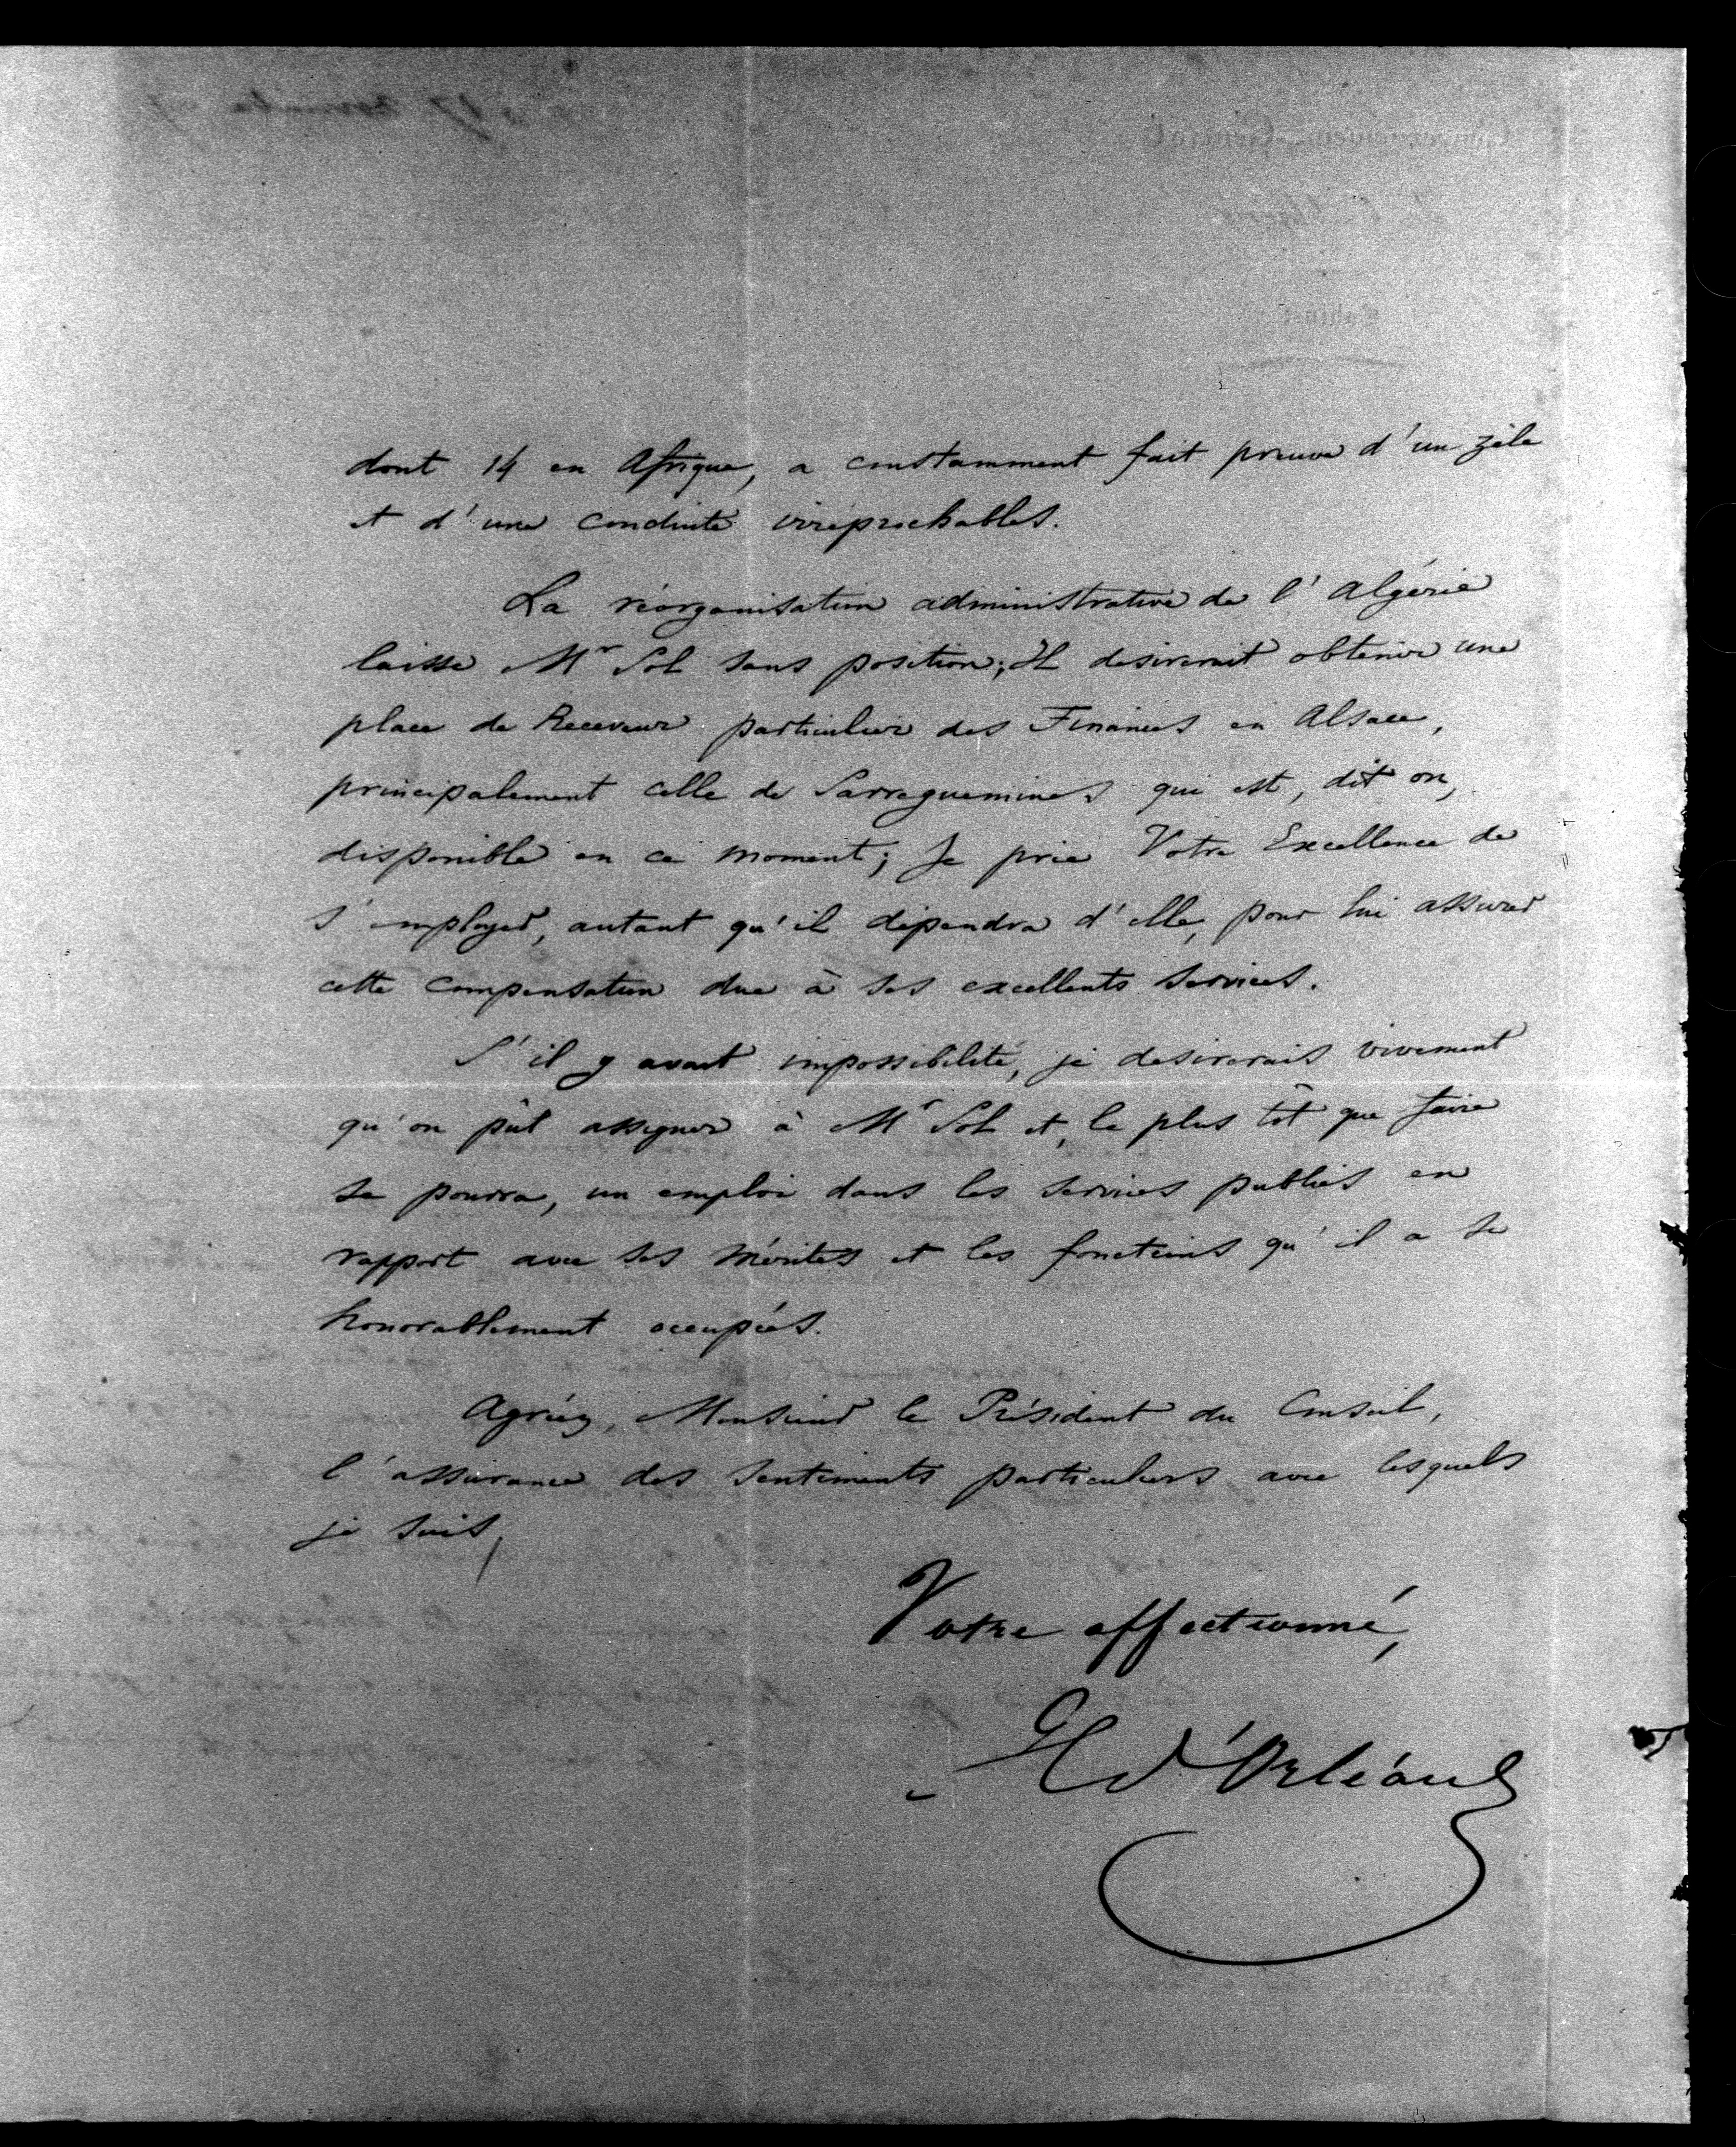 dont 14 en Afrique, a constamment fait preuve d'un zèle
et d'une conduite irréprochables.
La réorganisation administrative de l'Algérie
laisse Mr Sol sans position; Il desirerait obtenir une
place de Receveur particulier des Finances en Alsace,
principalement celle de Sarreguemines qui est, dit on,
disponible en ce moment; Je prie Votre Excellence de
s'employer, autant qu'il dépendra d'elle, pour lui assurer
cette compensation due à ses excellents services.
S'il y avait impossibilité, je desirerais vivement
qu'on pût assigner à Mr Sol et, le plus tôt que faire
se pourra, un emploi dans les services publics en
rapport avec ses mérites et les fonctions qu'il a si
honorablement occupées.
Agréez, Monsieur le Président du Conseil,
l'assurance des sentiments particuliers avec lesquels
je suis,
Votre affectionné,
d'Orléans